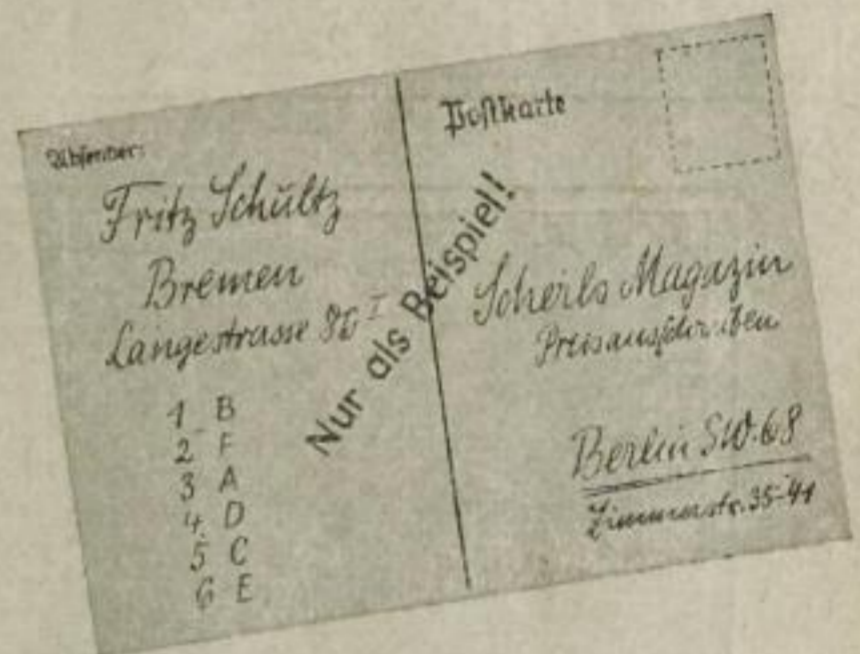 Absender:
Fritz Schultz
Bremen
Langestrasse I
1 B
2 F
3 A
4 D
5 C
6 E
Nur als Beispiel!
Postkarte
Scherls Magazin
Preisausschreiben
Berlin SW. 68
Zimmerstr. 35-41